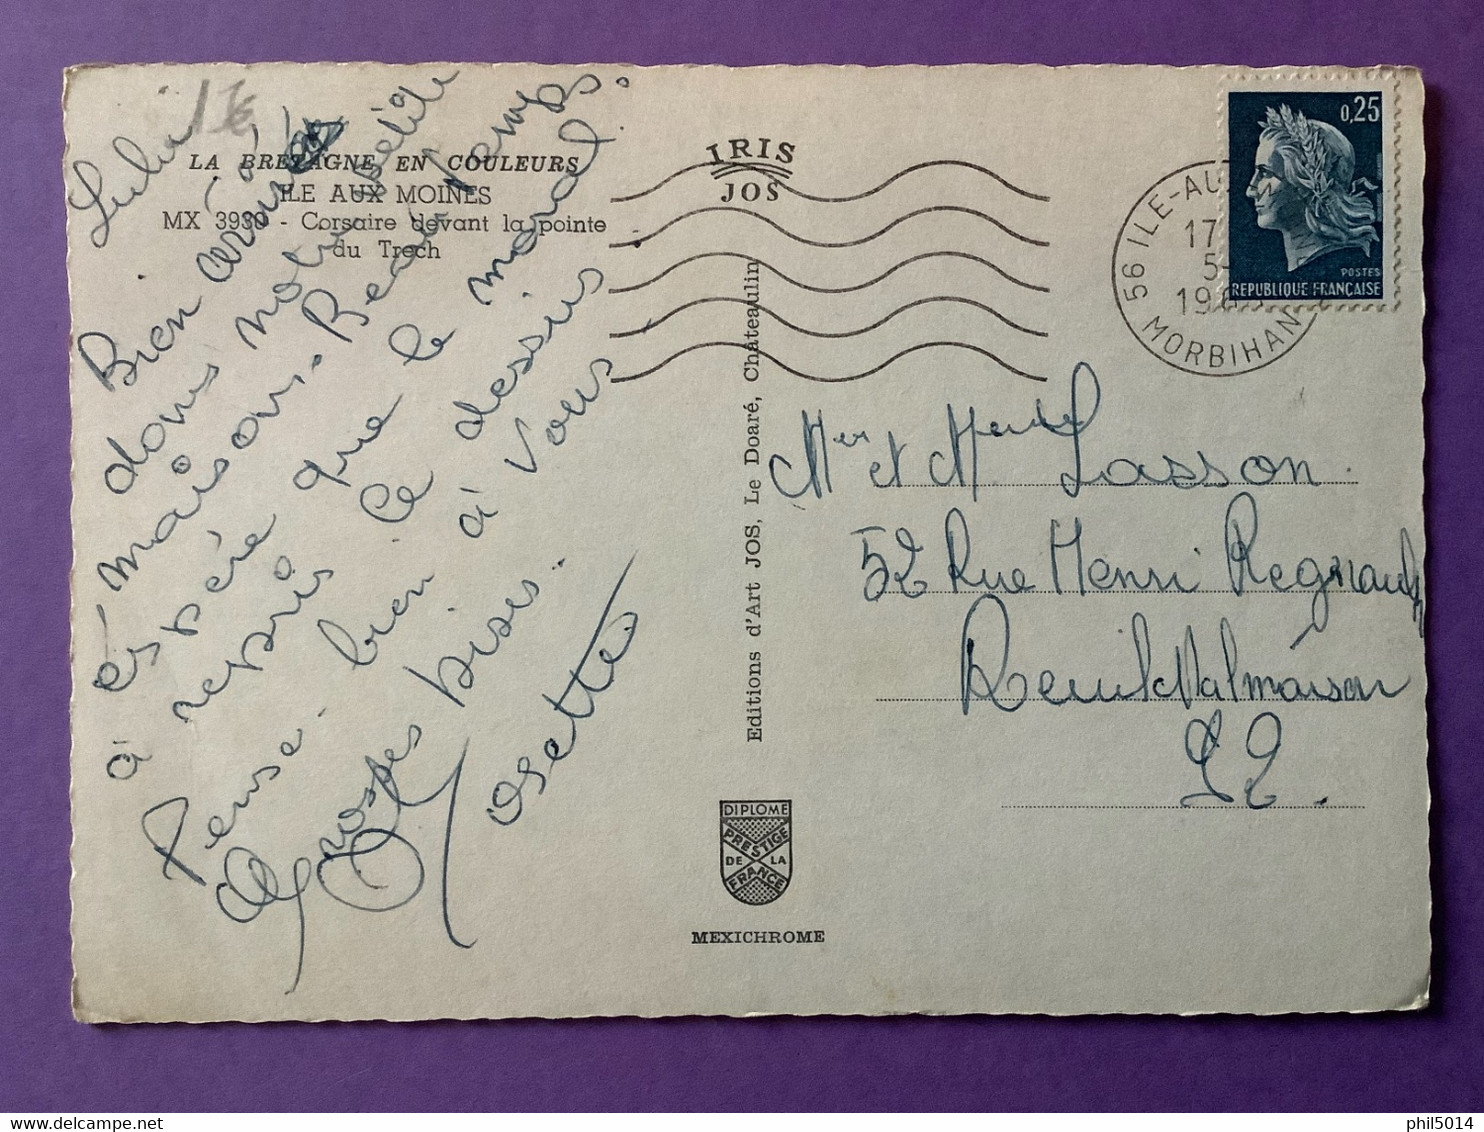 1€
LA BRETAGNE EN COULEURS
ILE AUX MOINES
MX 3930 - Corsaire devant la pointe
du Trech
Bien arrivées
dans notre petite
maison. Beau temps.
espère que le moral
à repris le dessus
Pense bien à vous
Grosses bises.
Osette
IRIS
JOS
Editions d'Art JOS, Le Doaré, Châteaulin
DIPLOME
PRESTIGE
DE LA
FRANCE
MEXICHROME
0,25
POSTES
REPUBLIQUE FRANÇAISE
56 ILE-AU
17
5-
19
MORBIHAN
et Lasson
52 Rue Henri Regnault
Rueil Malmaison
92.
phil5014